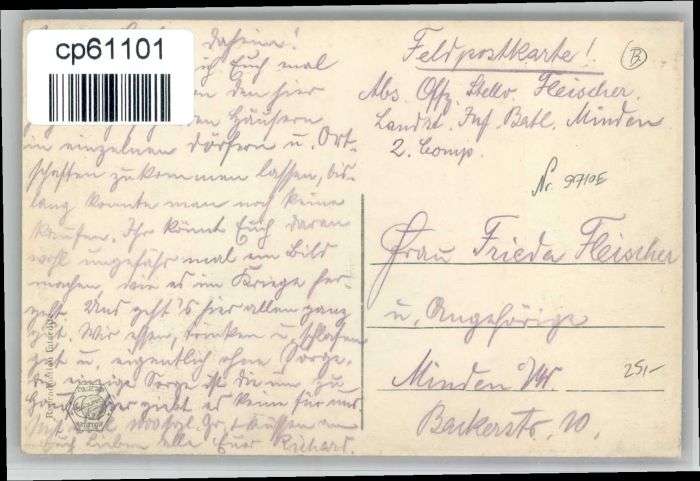 cp61101
daheim!
ich Euch mal
den hier
Häusern
in einzelnen Dörfern u. Ort-
schaften zukommen lassen, bis-
lang konnte man noch keine
kaufen. Ihr könnt Euch daran
wohl ungefähr mal ein Bild
machen, wie es im Kriege her-
geht. Uns geht's hier allem ganz
gut. Wir essen, trinken u. schlafen
gut u. eigentlich ohne Sorge.
einzige Sorge ist die um zu
giebt es keine für uns
Euch Lieben alle Euer Richard.
Feldpostkarte!
B
Abs. Offz. Stellv. Fleischer
Landst. Inf. Batl. Minden
2. Comp.
Nr. 9710E
Frau Frieda Fleischer
u. Angehörige
Minden i/W.
25,-
Bäckerstr. 10.